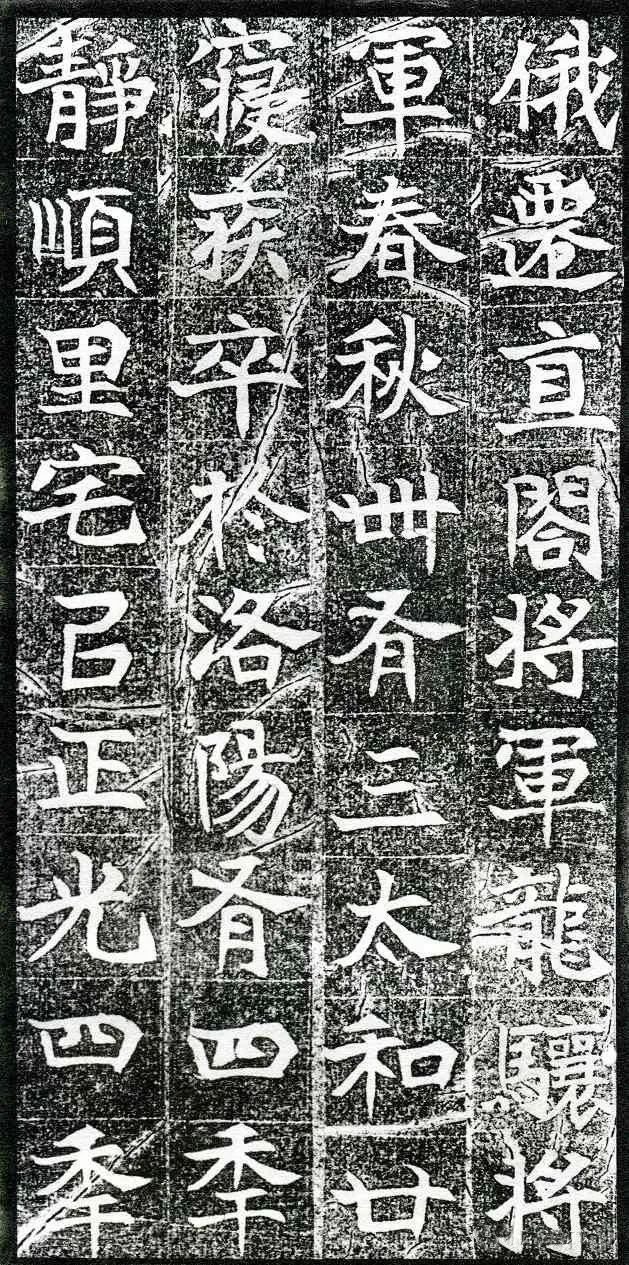 俄遷直閤將軍龍驤將
軍春秋卌有三太和廿
寢疾卒於洛陽有四秊
靜順里宅以正光四秊